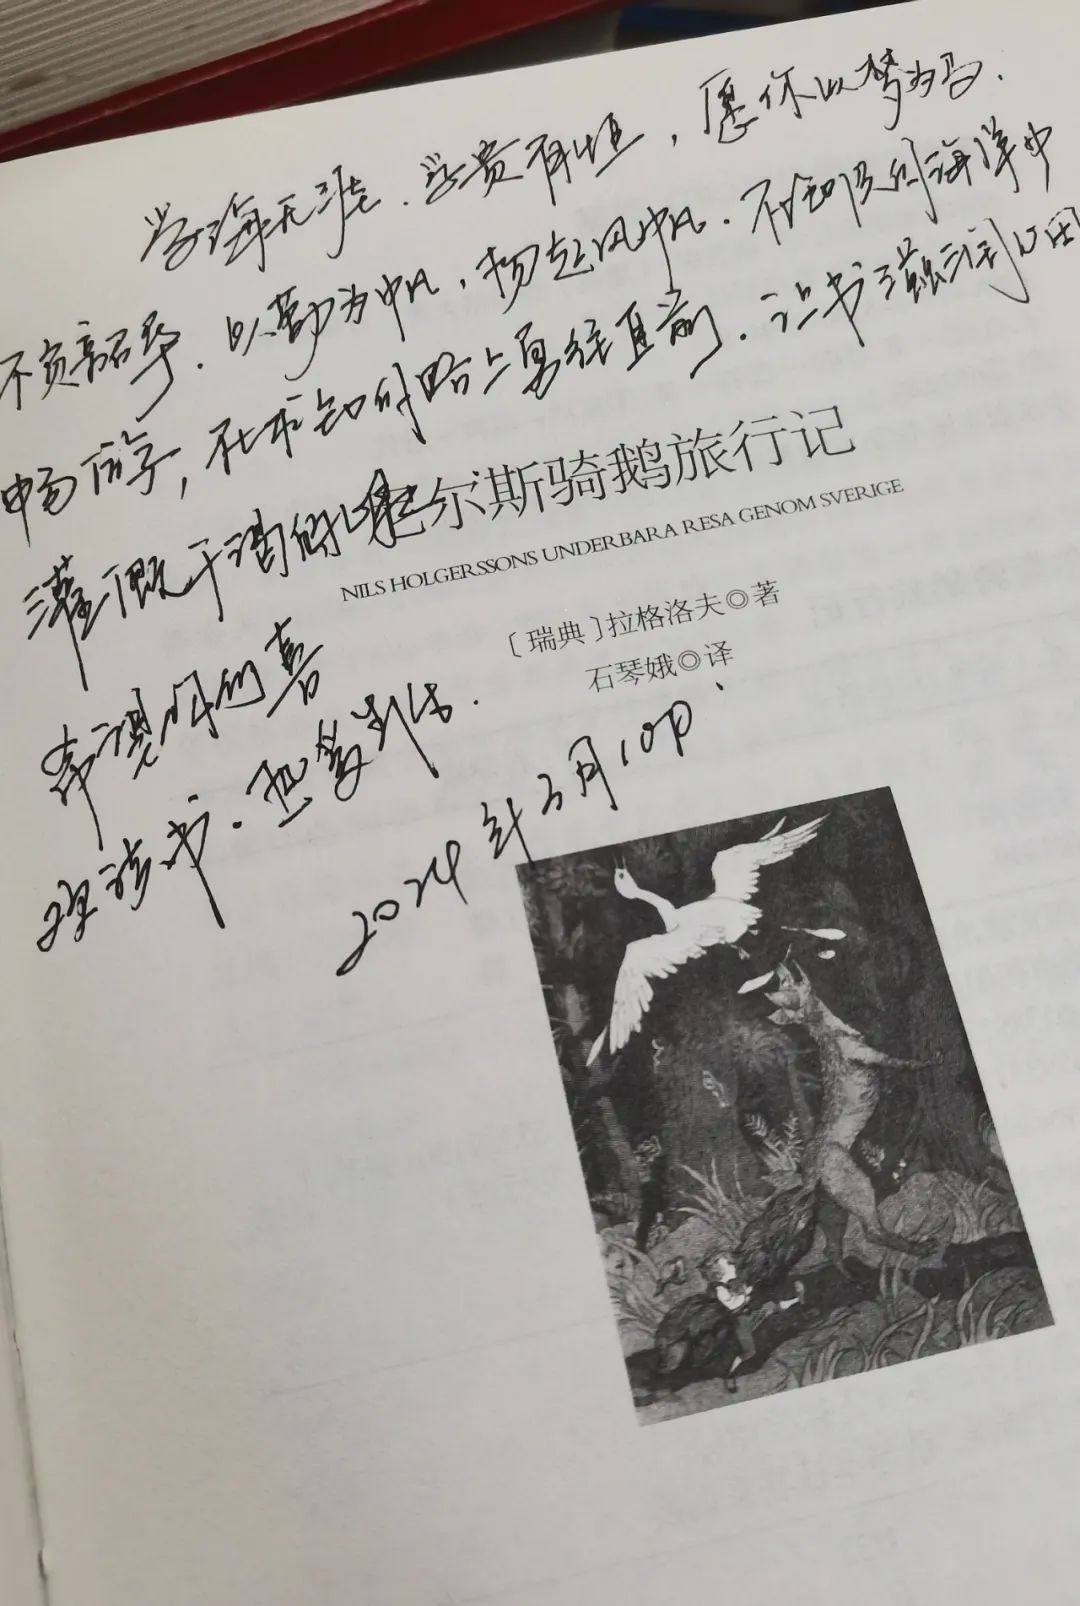 学海无涯.学贵有恒,愿你以梦为马.
不负韶华.以勤为帆,扬起风帆.在知识的海洋中
畅游,在求知的路上勇往直前.让书滋润心田
灌溉干渴的心
尼尔斯骑鹅旅行记
NILS HOLGERSSONS UNDERBARA RESA GENOM SVERIGE
〔瑞典〕拉格洛夫◎著
石琴娥◎译
希望你们喜
读书.热爱生活.
2024年3月10日